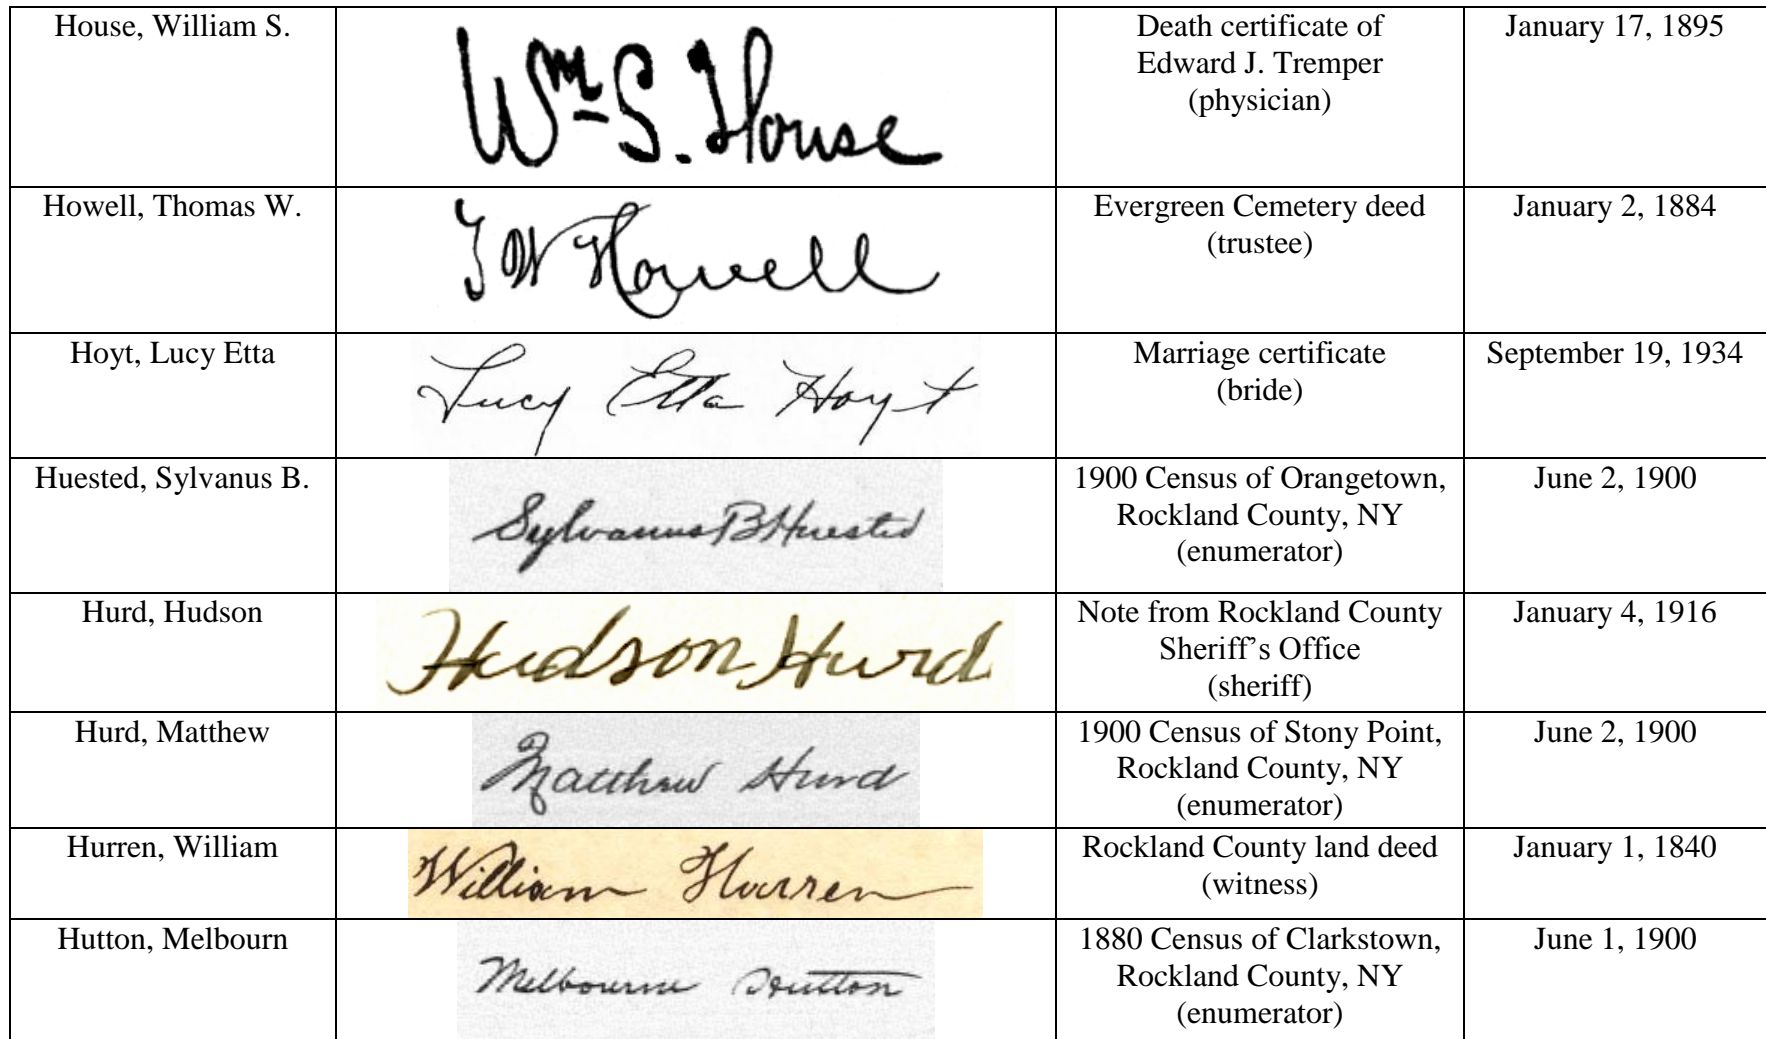 House, William S.
Wm S. House
Death certificate of
Edward J. Tremper
(physician)
January 17, 1895
Howell, Thomas W.
T W Howell
Evergreen Cemetery deed
(trustee)
January 2, 1884
Hoyt, Lucy Etta
Lucy Etta Hoyt
Marriage certificate
(bride)
September 19, 1934
Huested, Sylvanus B.
Sylvanus B Huested
1900 Census of Orangetown,
Rockland County, NY
(enumerator)
June 2, 1900
Hurd, Hudson
Hudson Hurd
Note from Rockland County
Sheriff’s Office
(sheriff)
January 4, 1916
Hurd, Matthew
Matthew Hurd
1900 Census of Stony Point,
Rockland County, NY
(enumerator)
June 2, 1900
Hurren, William
William Hurren
Rockland County land deed
(witness)
January 1, 1840
Hutton, Melbourn
Melbourne Hutton
1880 Census of Clarkstown,
Rockland County, NY
(enumerator)
June 1, 1900